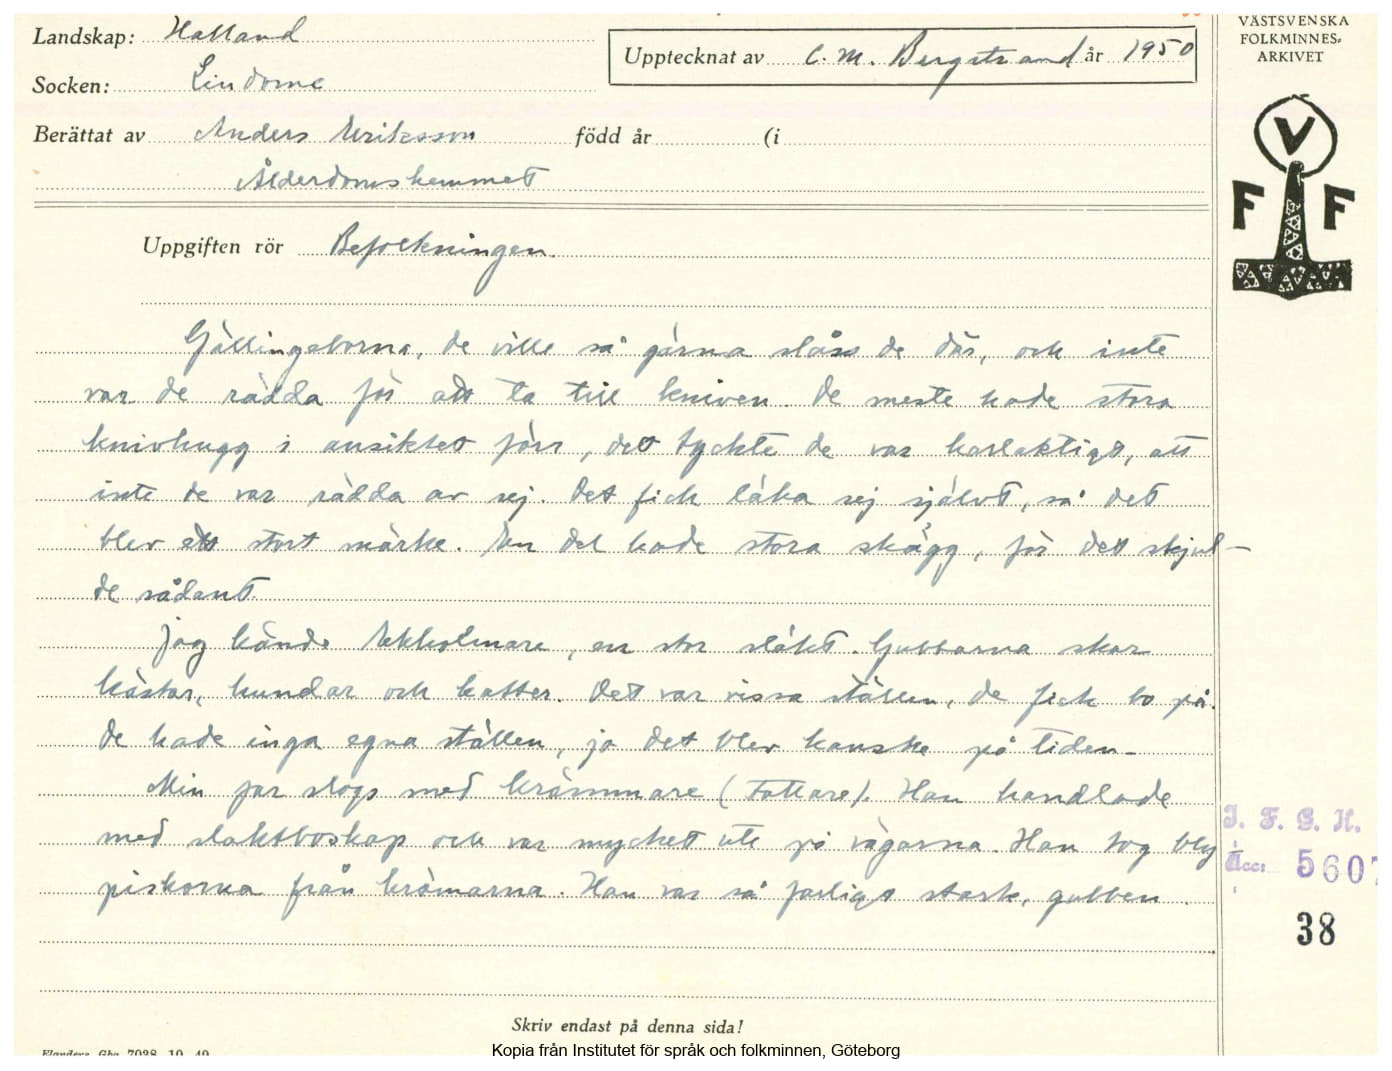 Landskap: Halland
Socken: Lindome
Upptecknat av C. M. Bergstrand år 1950
VÄSTSVENSKA
FOLKMINNES-
ARKIVET
V
F F
Berättat av Anders Eriksson född år (i
Ålderdomshemmet
Uppgiften rör Befolkningen.
Gällingeborna, de ville så gärna slåss de där, och inte
var de rädda för att ta till kniven. De meste hade stora
knivhugg i ansiktet förr, det tyckte de var karlaktigt, att
inte de var rädda av sej. Det fick läka sej självt, så det
blev ett stort märke. En del hade stora skägg, för det skjul-
de sådant.
Jag kände Ekholmare, en stor släkt. Gubbarna skar
hästar, hundar och katter. Det var vissa ställen, de fick bo på.
De hade inga egna ställen, jo det blev kanske på tiden.
Min far slogs med krämmare (Tattare). Han handlade
med slaktboskap och var mycket ute på vägarna. Han tog bly
piskorna från krämarna. Han var så farligt stark, gubben.
I. F. G. H.
Acc: 5607
38
Skriv endast på denna sida!
Flanders Gbg 7038 10 49
Kopia från Institutet för språk och folkminnen, Göteborg